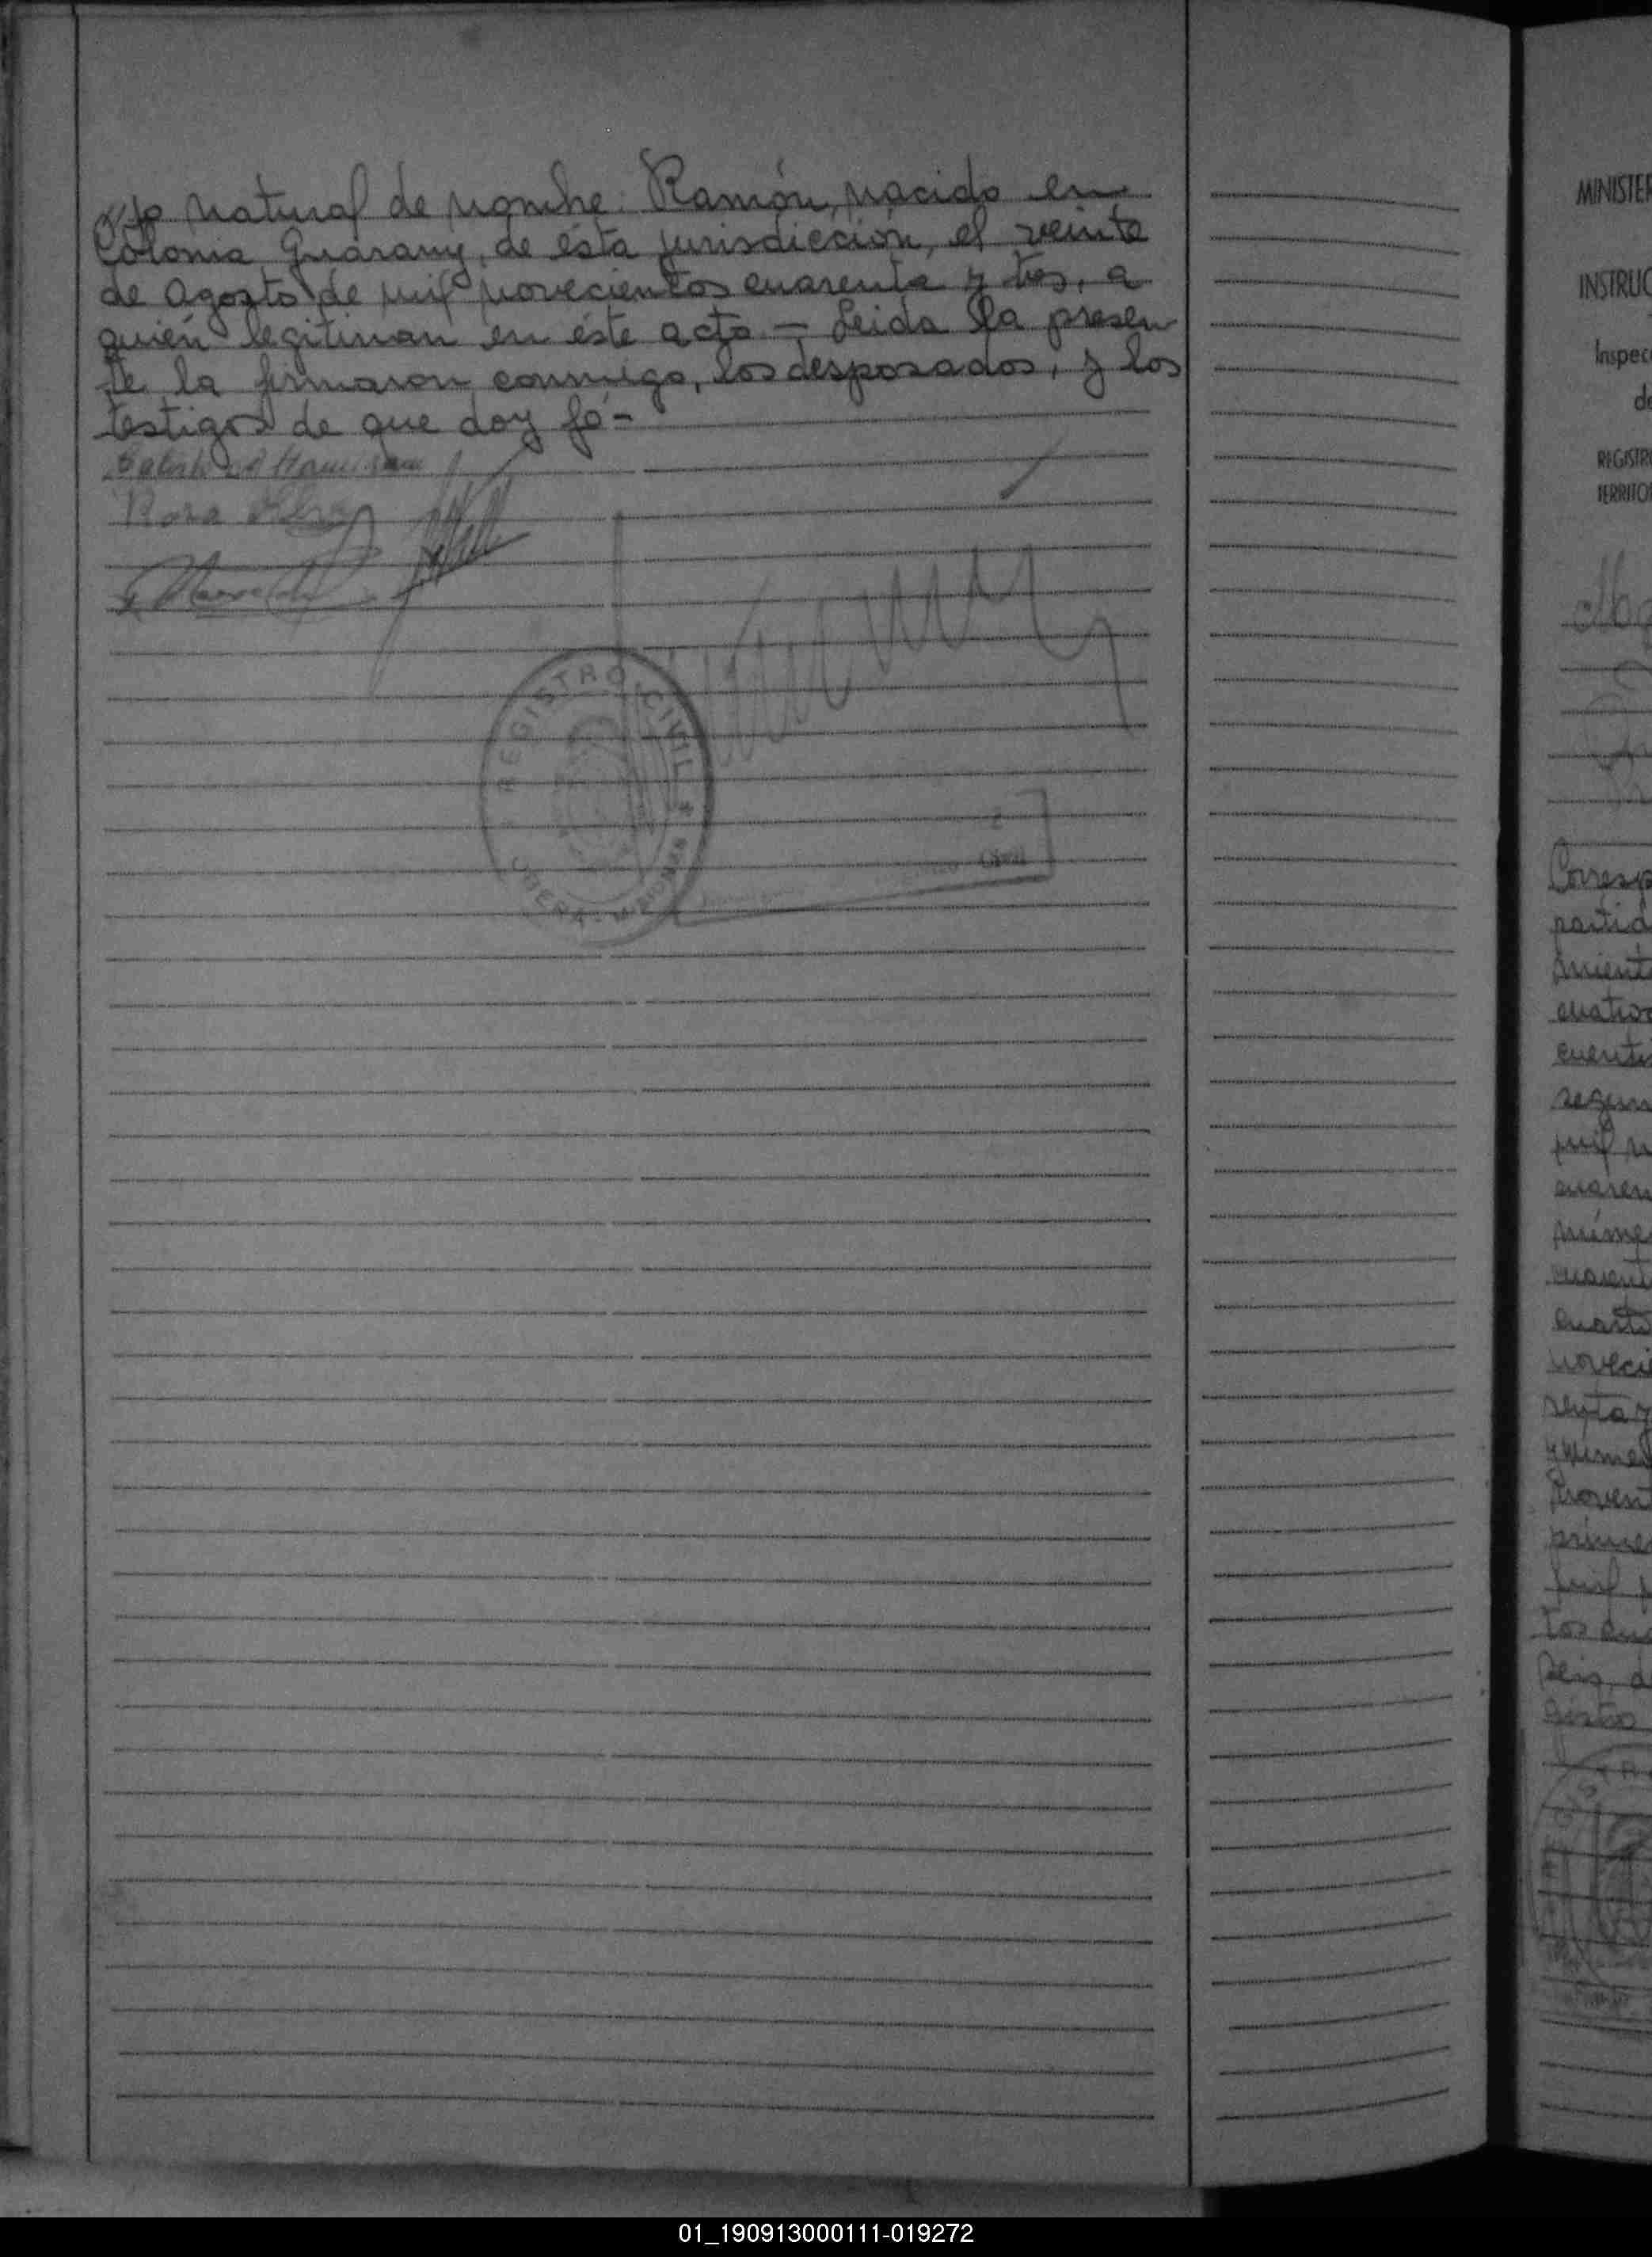 hijo natural de nombre: Ramón, nacido en
Colonia Guarany, de ésta jurisdicción, el veinte
de Agosto de mil novecientos cuarenta y tres, a
quién legitiman en éste acto.— Leida la presen
te la firmaron conmigo, los desposados, y los
testigos de que doy fé-
Rosa
REGISTRO CIVIL
OBERA - MISIONES
MINISTER
INSTRUC
Inspec
de
REGISTR
TERRITO
Corresp
partid
mient
cuatro
cuenti
segun
mil n
cuaren
núme
cuarent
cuarto
noveci
senta y
y nume
noven
primer
mil
tos cua
Seis, d
gistro
01_190913000111-019272